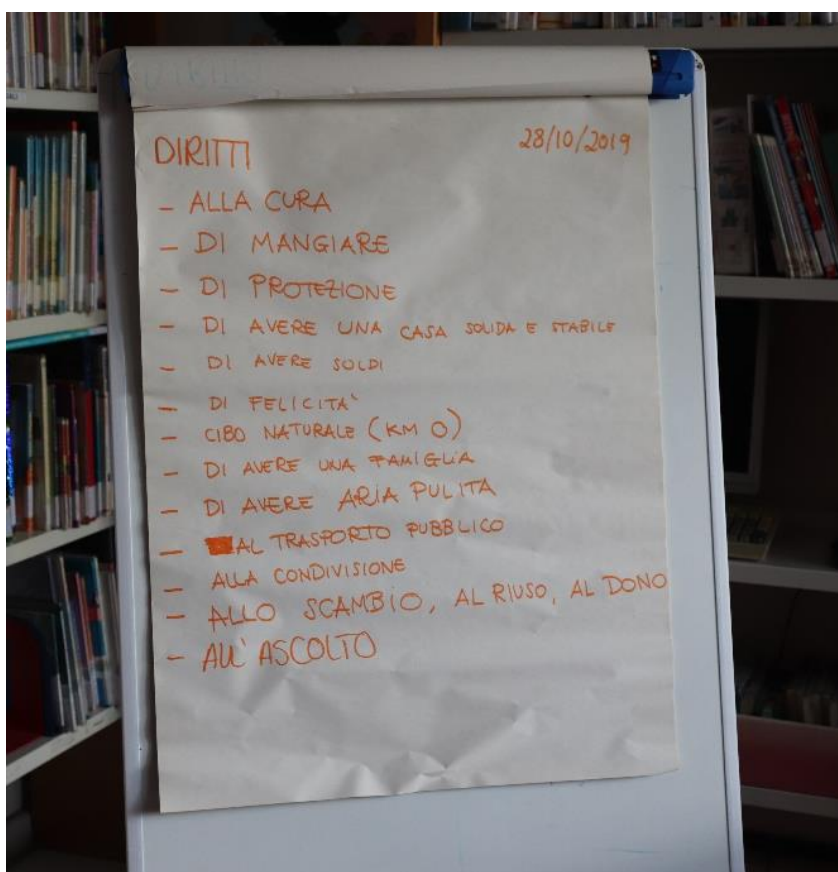 DIRITTI 28/10/2019
- ALLA CURA
- DI MANGIARE
- DI PROTEZIONE
- DI AVERE UNA CASA SOLIDA E STABILE
- DI AVERE SOLDI
- DI FELICITA'
- CIBO NATURALE (KM O)
- DI AVERE UNA FAMIGLIA
- DI AVERE ARIA PULITA
- AL TRASPORTO PUBBLICO
- ALLA CONDIVISIONE
- ALLO SCAMBIO, AL RIUSO, AL DONO
- ALL'ASCOLTO